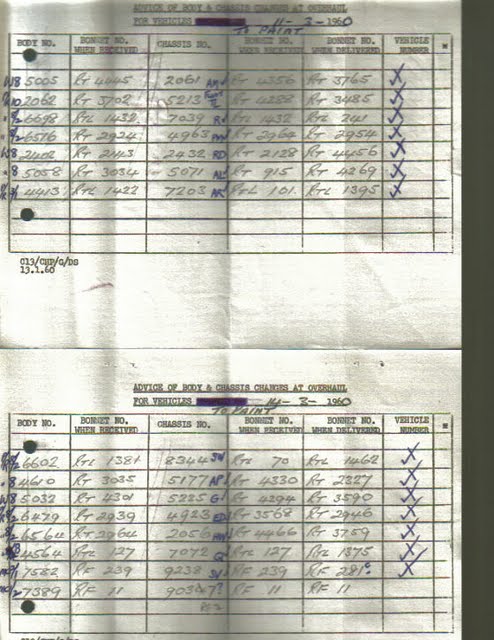 ADVICE OF BODY & CHASSIS CHANGES AT OVERHAUL
FOR VEHICLES 11-3-1960
TO PAINT
BODY NO. BONNET NO. WHEN RECEIVED CHASSIS NO. BONNET NO. WHEN RECEIVED BONNET NO. WHEN DELIVERED VEHICLE NUMBER
W8 5005 RT 4445 2061 RT 4356 RT 3765 X
2062 RT 3702 5213 RT 4288 RT 3485 X
6698 RTL 1432 7039 RTL 1432 RTL 241 X
6516 RT 2924 4963 RT 2964 RT 2954 X
W8 2402 RT 2143 2432 RD RT 2128 RT 4456 X
8 5058 RT 3034 5071 AL RT 915 RT 4269 X
4413 RTL 1422 7203 AR RTL 101 RTL 1395 X
C13/CHP/G/DS
13.1.60
ADVICE OF BODY & CHASSIS CHANGES AT OVERHAUL
FOR VEHICLES 14-3-1960
TO PAINT
BODY NO. BONNET NO. WHEN RECEIVED CHASSIS NO. BONNET NO. WHEN RECEIVED BONNET NO. WHEN DELIVERED VEHICLE NUMBER
6602 RTL 1381 8344 SW RTL 70 RTL 1462 X
8 4610 RT 3035 5177 AP RT 4330 RT 2327 X
W8 5032 RT 4301 5235 G RT 4294 RT 3590 X
6479 RT 2939 4923 ED RT 3568 RT 2946 X
6564 RT 2964 2056 RT 4466 RT 3759 X
4564 RTL 127 7072 RTL 127 RTL 1375 X
7582 RF 239 9238 RF 239 RF 281 X
7389 RF 11 RF 11 RF 11